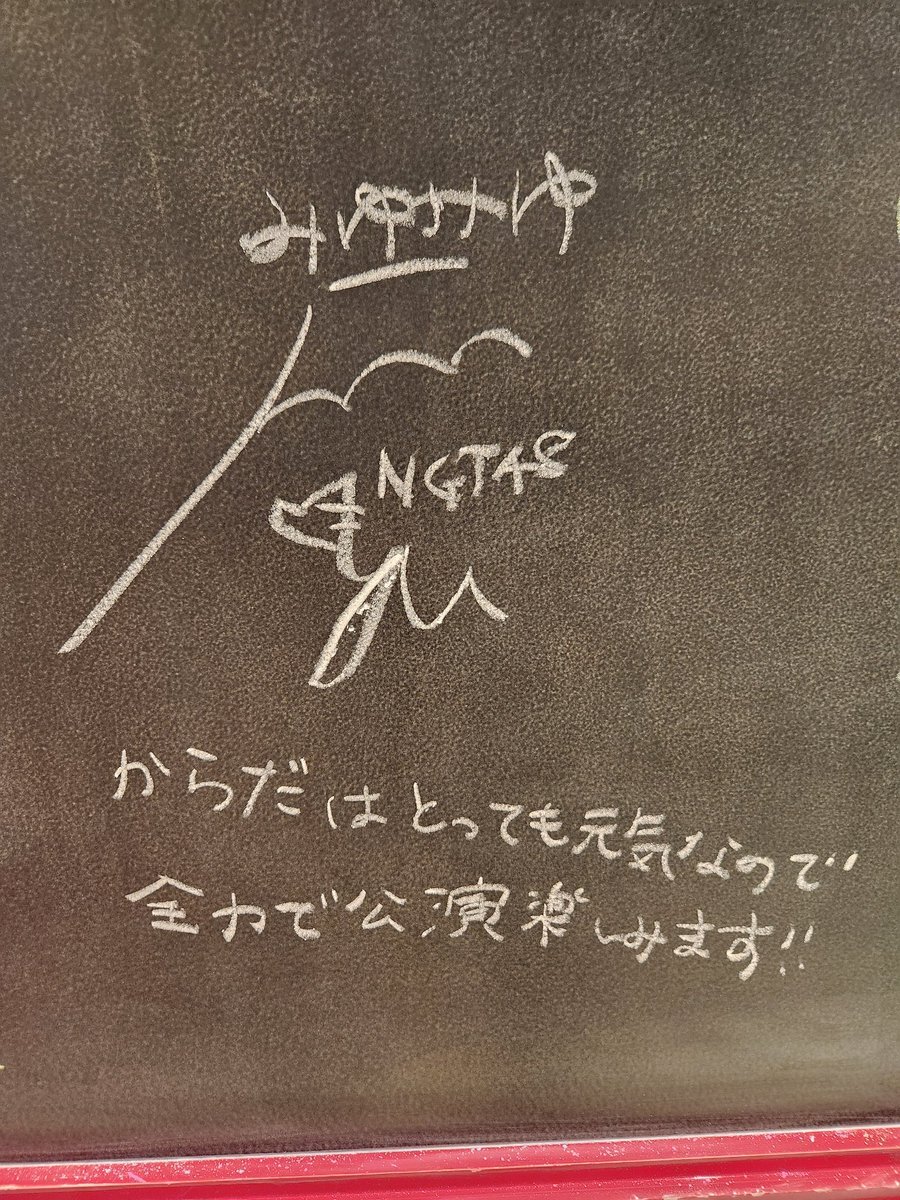 みゆみゆ
NGT48
からだはとっても元気なので
全力で公演楽しみます!!